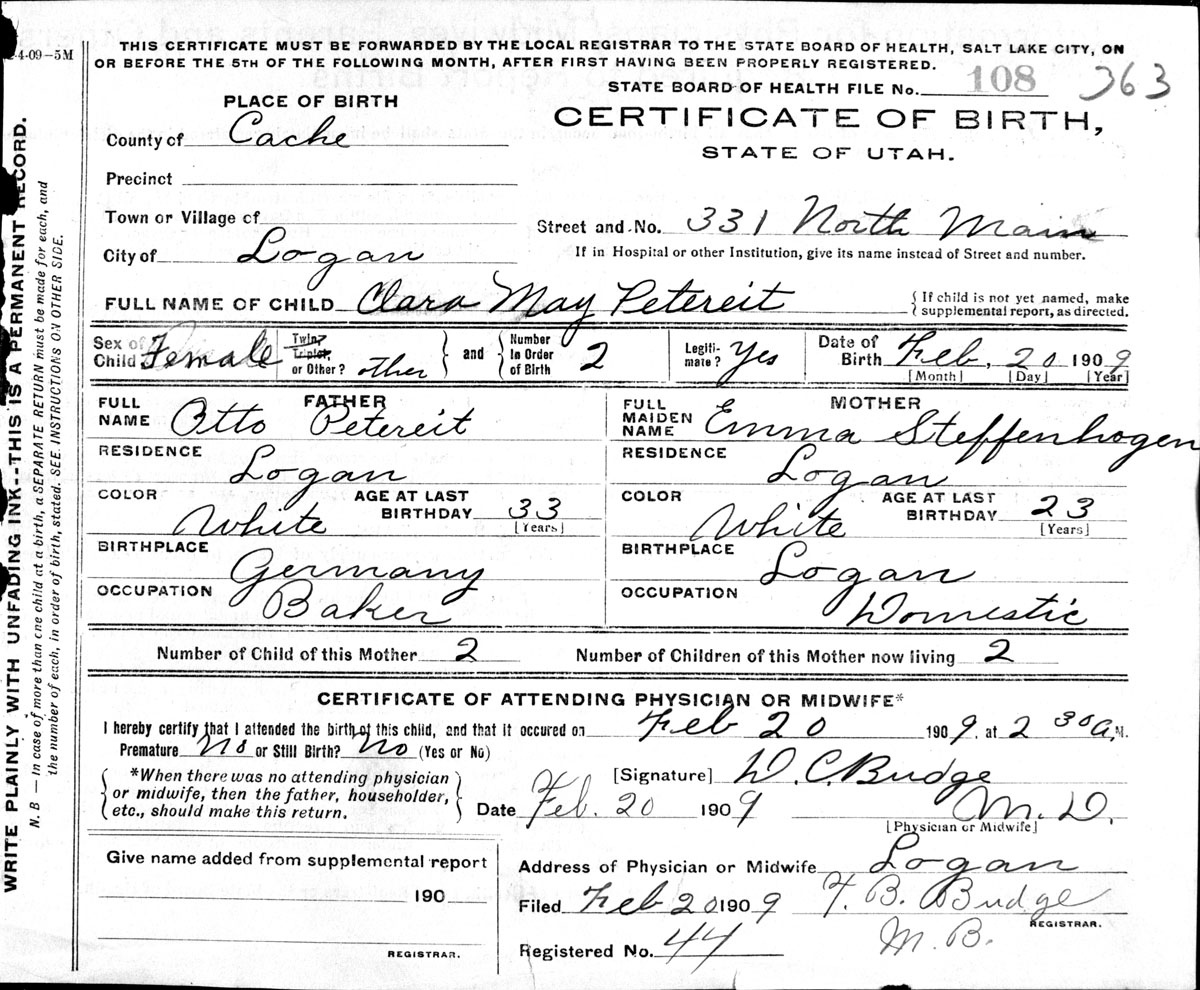 2-4-09-5M
THIS CERTIFICATE MUST BE FORWARDED BY THE LOCAL REGISTRAR TO THE STATE BOARD OF HEALTH, SALT LAKE CITY, ON
OR BEFORE THE 5TH OF THE FOLLOWING MONTH, AFTER FIRST HAVING BEEN PROPERLY REGISTERED.
STATE BOARD OF HEALTH FILE No. 108 363
PLACE OF BIRTH
CERTIFICATE OF BIRTH,
STATE OF UTAH.
County of Cache
Precinct
Town or Village of
Street and No. 331 North Main
City of Logan
If in Hospital or other Institution, give its name instead of Street and number.
FULL NAME OF CHILD Clara May Petereit
{ If child is not yet named, make
supplemental report, as directed.
Sex of Child Female
Twin, Triplet, or Other? other } and { Number In Order of Birth 2
Legiti-mate? Yes
Date of Birth Feb. 20 1909
[Month] [Day] [Year]
FATHER
FULL NAME Otto Petereit
RESIDENCE Logan
COLOR White AGE AT LAST BIRTHDAY 33
[Years]
BIRTHPLACE Germany
OCCUPATION Baker
MOTHER
FULL MAIDEN NAME Emma Steffenhogen
RESIDENCE Logan
COLOR White AGE AT LAST BIRTHDAY 23
[Years]
BIRTHPLACE Logan
OCCUPATION Domestic
Number of Child of this Mother 2 Number of Children of this Mother now living 2
CERTIFICATE OF ATTENDING PHYSICIAN OR MIDWIFE*
I hereby certify that I attended the birth of this child, and that it occured on Feb 20 1909, at 2 30 a.M.
Premature No or Still Birth? No (Yes or No)
{ *When there was no attending physician
or midwife, then the father, householder,
etc., should make this return. }
[Signature] D. C. Budge
Date Feb. 20 1909 M. D.
[Physician or Midwife]
Give name added from supplemental report
190
REGISTRAR.
Address of Physician or Midwife Logan
Filed Feb 20 1909 F. B. Budge
REGISTRAR.
M. B.
Registered No. 44
WRITE PLAINLY WITH UNFADING INK--THIS IS A PERMANENT RECORD.
N. B — In case of more than one child at a birth, a SEPARATE RETURN must be made for each, and
the number of each, in order of birth, stated. SEE INSTRUCTIONS ON OTHER SIDE.